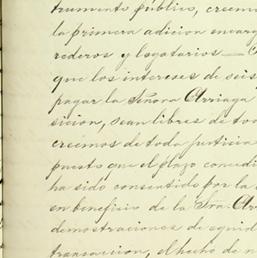 trumento público, creemo
la primera adicion encarg
rederos y legatarios — C
que los intereses de seis
pagar la Señora Arriaga
sicion, sean libres de too
creemos de toda justicia
puesto que el plazo concedi
ha sido consentido por la
en beneficio de la Sra. Ar
demostraciones de equid
transaccion, el hecho de n